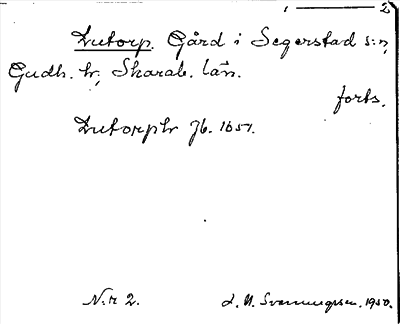 2
Lutorp. Gård i Segerstad s:n,
Gudh. hr, Skarab. län.
forts.
Lutorph Jb. 1651.
N:r 2.
1950.